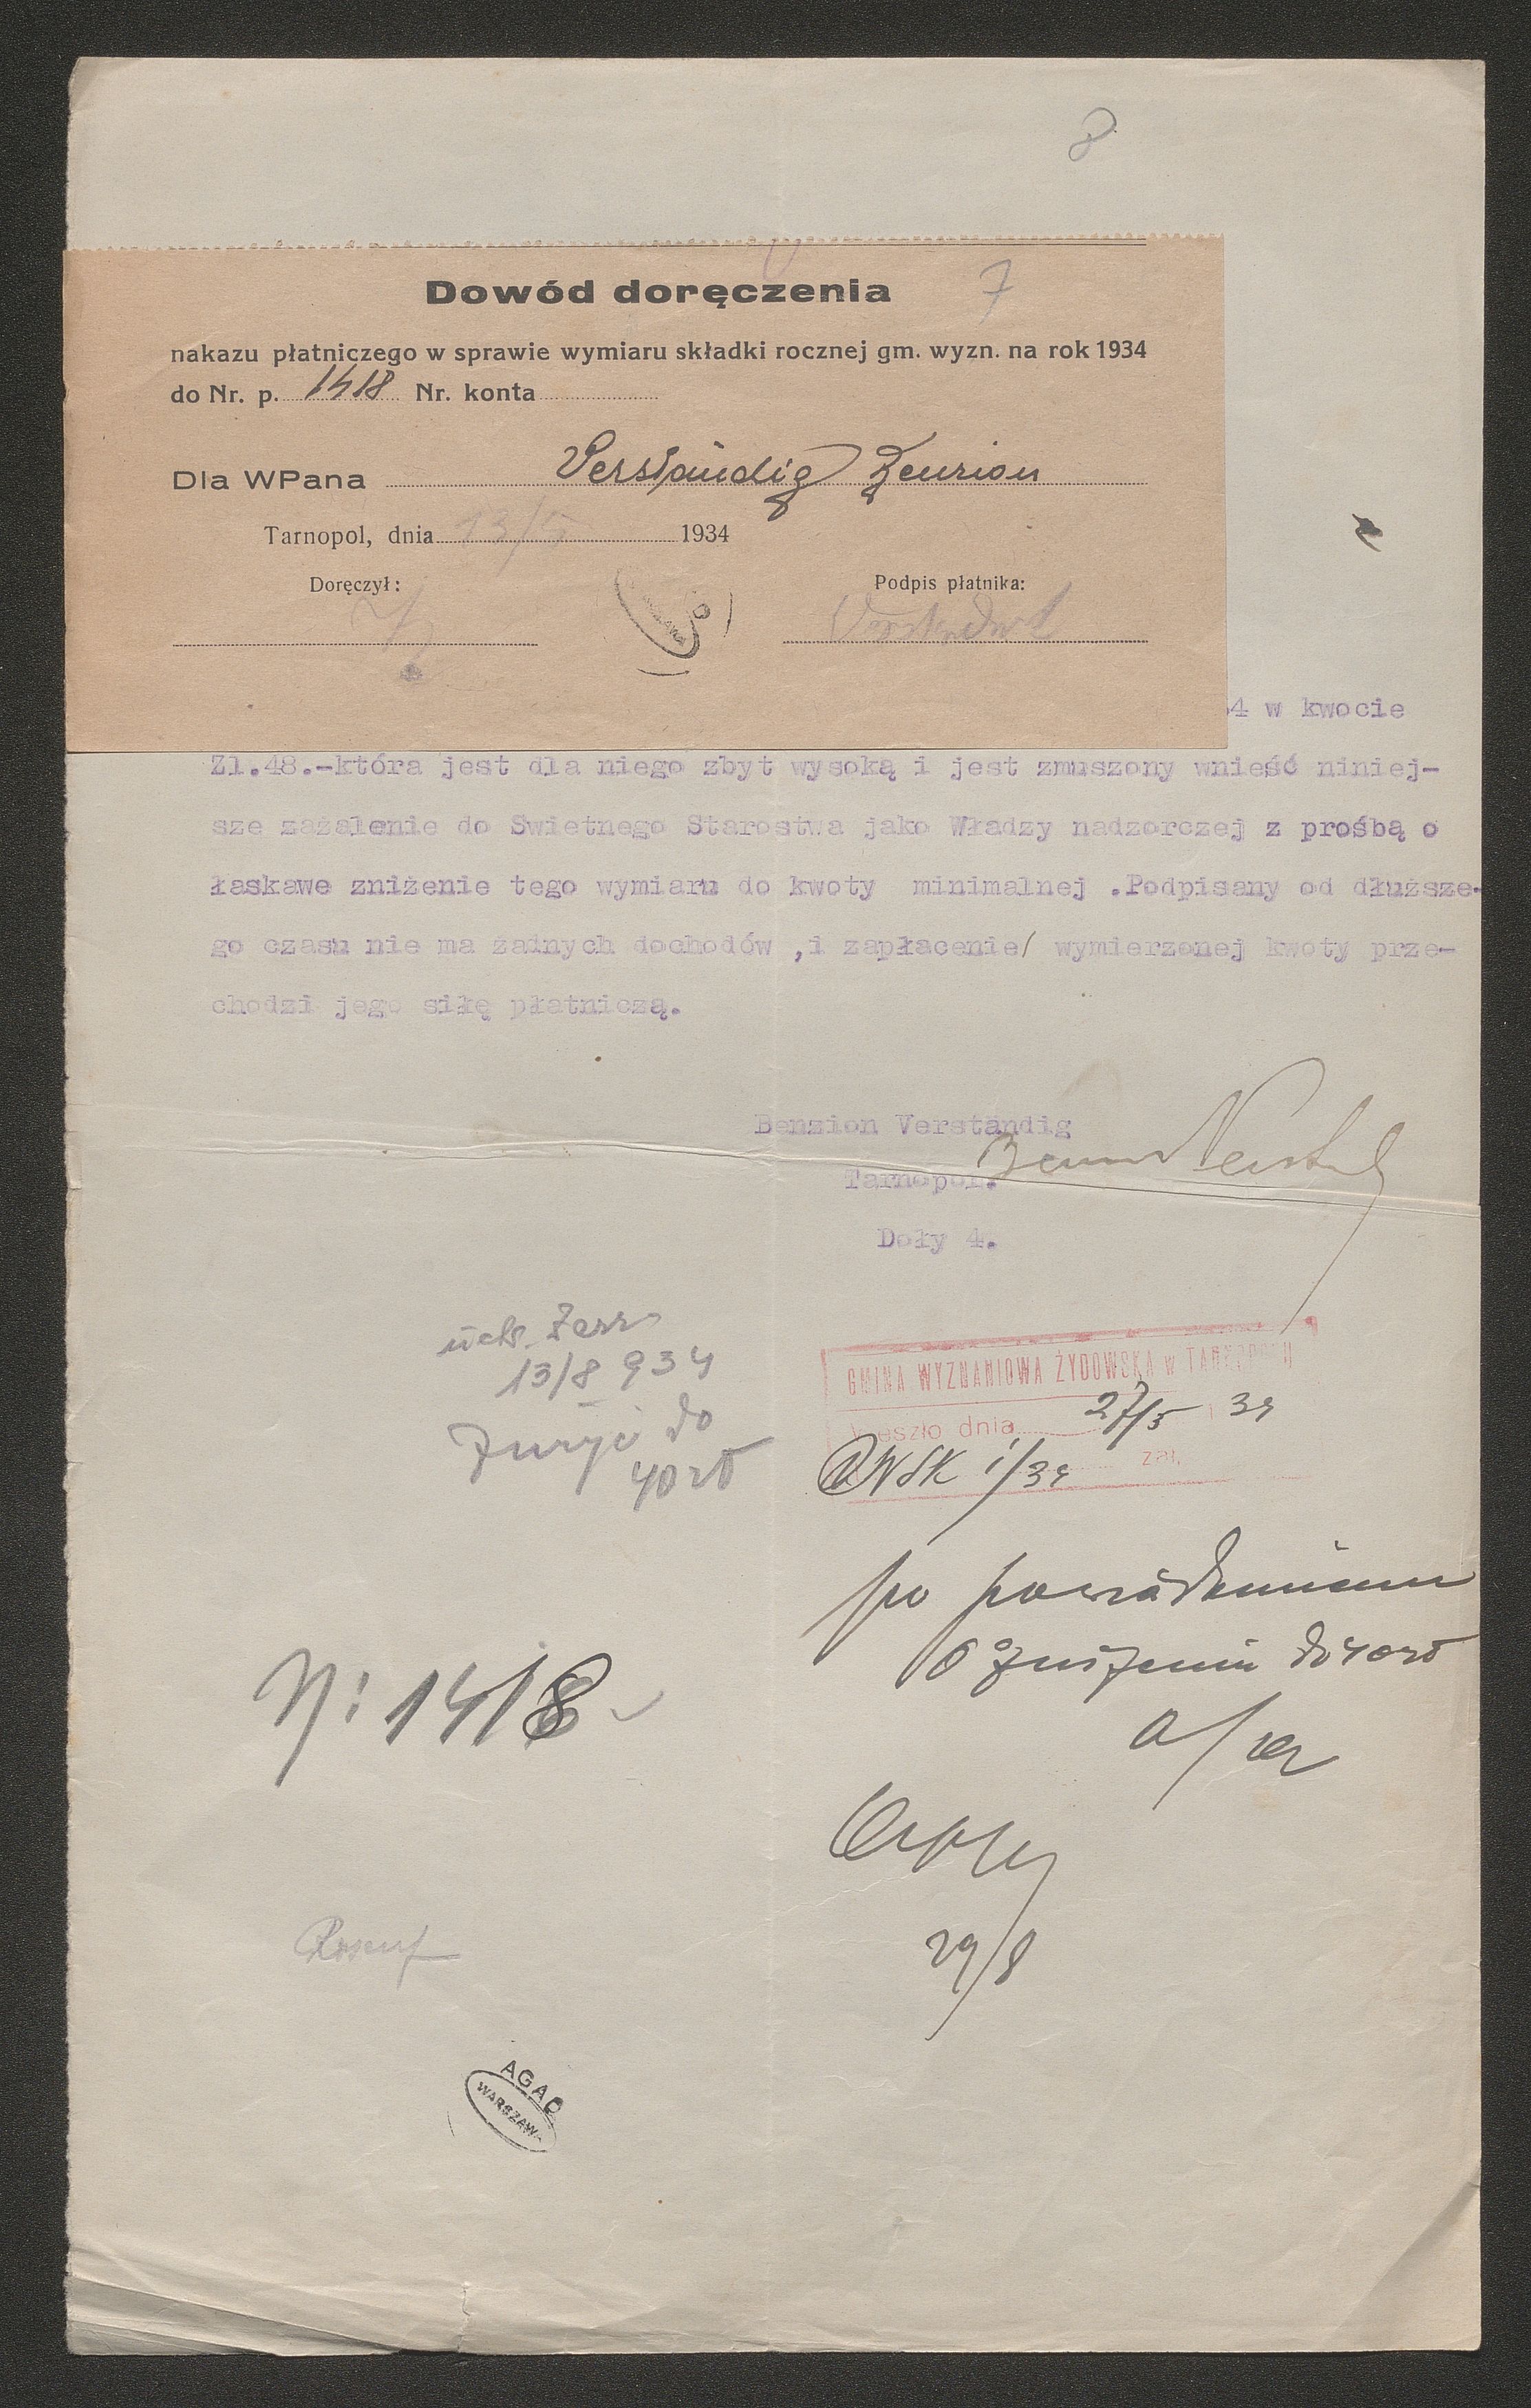 8
Dowód doręczenia
7
nakazu płatniczego w sprawie wymiaru składki rocznej gm. wyzn. na rok 1934
do Nr. p. 1418 Nr. konta
Dla WPana Verständig Benzion
Tarnopol, dnia 13/5 1934
Doręczył:
Podpis płatnika:
34 w kwocie
Zl.48.-która jest dla niego zbyt wysoką i jest zmuszony wnieść niniej-
sze zażalenie do Swietnego Starostwa jako Władzy nadzorczej z prośbą o
łaskawe zniżenie tego wymiaru do kwoty minimalnej .Podpisany od dłuższe-
go czasu nie ma żadnych dochodów ,i zapłacenie/ wymierzonej kwoty prze-
chodzi jego siłę płatniczą.
Benzion Verständig
Tarnopol.
Doły 4.
uchw. Zarz
13/8 934
Zniżyć do
40 zł
GMINA WYZNANIOWA ŻYDOWSKA w TARNOPOLU
Weszło dnia 27/5 34
1/34 zał.
po powiadomieniu
o zniżeniu do 40 zł
a/a
N: 1418
29/8
AGAD
WARSZAWA